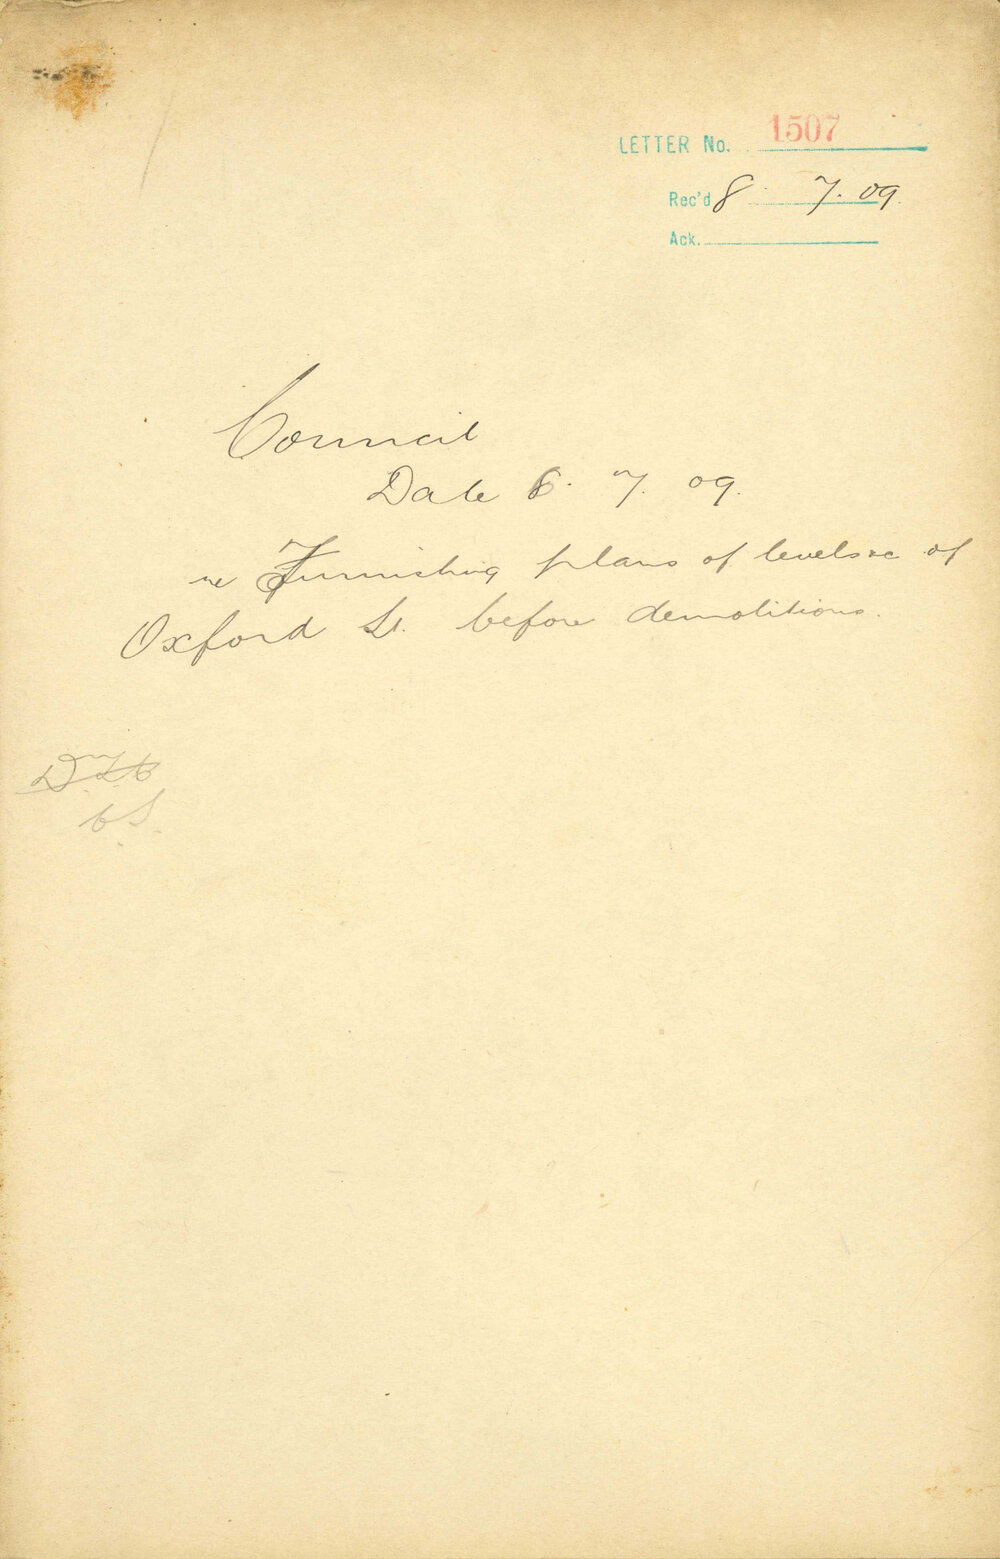 LETTER No. 1507
Rec'd 8. 7. 09.
Ack.
Council
Date 6. 7. 09.
re Furnishing plans of levels &c of
Oxford St. before demolitions.